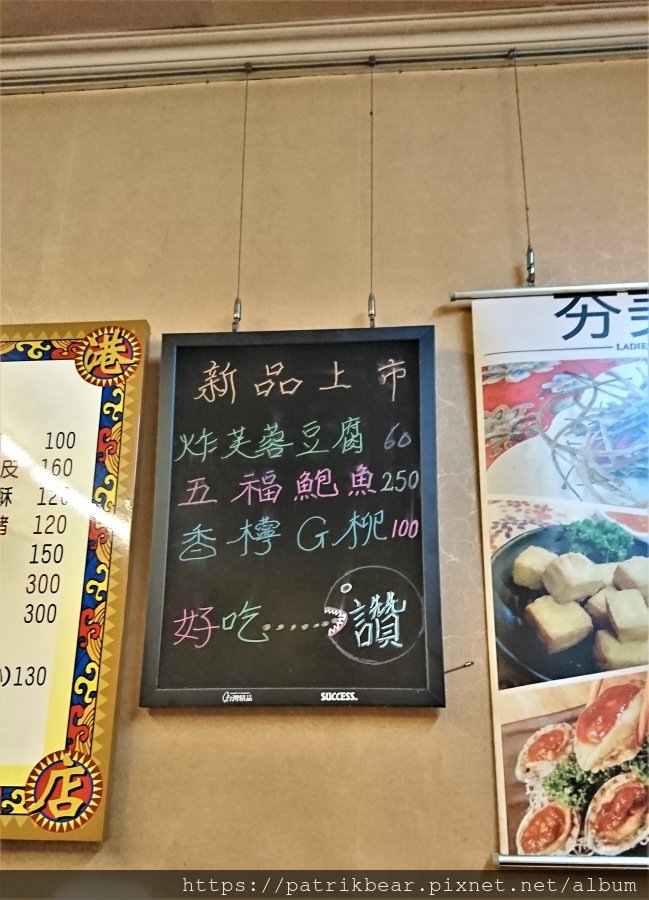 港
100
皮 160
酥 120
120
150
300
300
)130
店
新品上市
炸芙蓉豆腐 60
五福鮑魚 250
香檸G柳 100
好吃......讚
SUCCESS.
夯
LADIE
https://patrikbear.pixnet.net/album